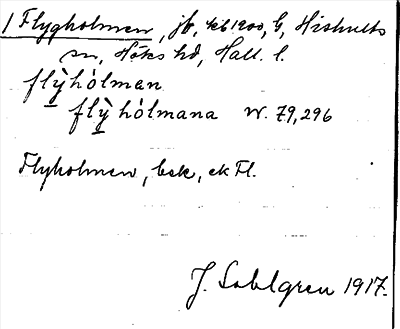 1 Flygholmen, jb, kb 1900, G, Hishults
sn, Höks hd, Hall. l.
flỳhólman
flỳhólmana W. 79,296
Flyholmen, bek, ek Fl.
J. Sahlgren 1917.